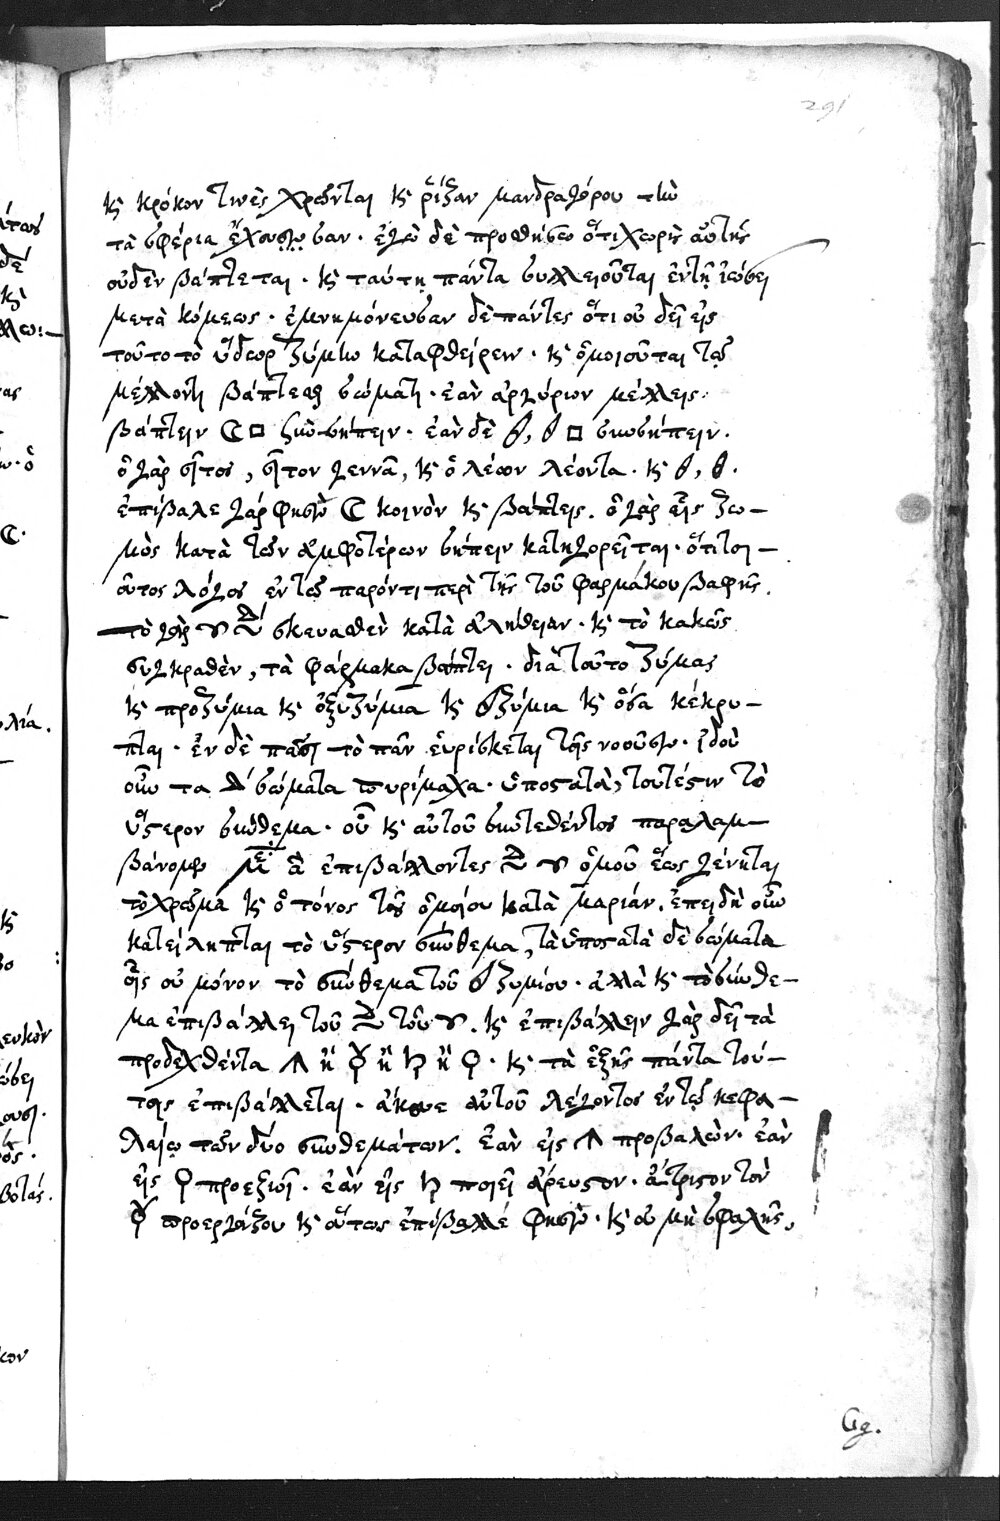 291
κ κρόκον τινὲς χρῶνται κ ρίζαν μανδραγόρου τὴν
τὰ σφέρια ἔχουσαν. ἐγὼ δὲ προσθήσω ὅτι χωρὶς αὐτῆς
οὐδὲν βάπτεται. κ ταύτῃ πάντα συλλειοῦται ἐν τῇ ἰώσει
μετὰ κόμεως. ἐμνημόνευσαν δὲ πάντες ὅτι οὐ δεῖ εἰς
τοῦτο τὸ ὕδωρ ζύμην καταφθείρειν. κ ὁμοιοῦται τῷ
μέλλοντι βάπτεσθαι σώματι. ἐὰν ἀργύριον μέλλεις
βάπτειν ☾ □ συνσήπειν. ἐὰν δὲ □ συνσήπειν.
ὁ γὰρ σῖτος, σῖτον γεννᾶ, κ ὁ λέων λέοντα. κ
ἐπίβαλε γάρ φησιν ☾ κοινὸν κ βάπτεις. ὁ γὰρ εἷς ζω–
μὸς κατὰ τῶν ἀμφοτέρων σήπειν κατηγορεῖται. ὅτι τοι–
οῦτος λόγος ἐν τῷ παρόντι περὶ τῆς τοῦ φαρμάκου βαφῆς.
τὸ γὰρ σκευασθὲν κατὰ ἀλήθειαν. κ τὸ κακῶς
συγκραθὲν, τὰ φάρμακα βάπτει. διὰ τοῦτο ζύμας
κ προζύμια κ ὀξυζύμια κ ζύμια κ ὅσα κέκρυ–
πται. ἐν δὲ πᾶσι τὸ πᾶν εὑρίσκεται τοῖς νοοῦσιν. ἰδοὺ
οὖν τα δ σώματα πυρίμαχα. ὑποστατὰ, τουτέστιν τὸ
ὕστερον σύνθεμα. οὗ κ αὐτοῦ συντεθέντος παραλαμ–
βάνομεν ἐπιβάλλοντες ὁμοῦ ἕως γένηται
τὸ χρῶμα κ ὁ τόνος τοῦ ὁμοίου κατὰ Μαριάν. ἐπειδὴ οὖν
κατείληπται τὸ ὕστερον σύνθεμα, τὰ ὑποστατὰ δὲ σώματα
οἷς οὐ μόνον τὸ σύνθεμα τοῦ ζυμίου. ἀλλὰ κ τὸ σύνθε–
μα ἐπιβάλλει τοῦ τοῦ. κ ἐπιβάλλειν γὰρ δεῖ τὰ
προδεχθέντα ἢ ἢ ἢ ♀. κ τὰ ἑξῆς πάντα τού–
τοις ἐπιβάλλεται. ἄκουε αὐτοῦ λέγοντος ἐν τῷ κεφα–
λαίῳ τῶν δύο συνθεμάτων. ἐὰν εἰς προβαλών. ἐὰν
εἰς ♀ προεξιοῖ. ἐὰν εἰς ποιεῖ ἄρευστον. τὸν
προεργάζου κ οὕτως ἐπίβαλλέ φησιν. κ οὐ μὴ σφαλῇς,
Gg.